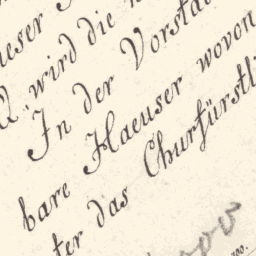 ieser
Q. wird die
In der Vorsta
bare Haeuser wovon
ter das Churfürstli